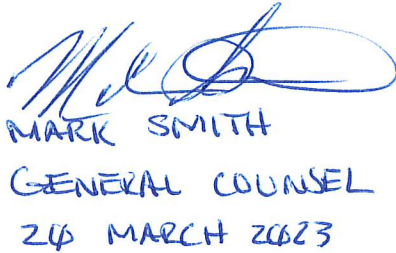 MARK SMITH
GENERAL COUNSEL
20 MARCH 2023